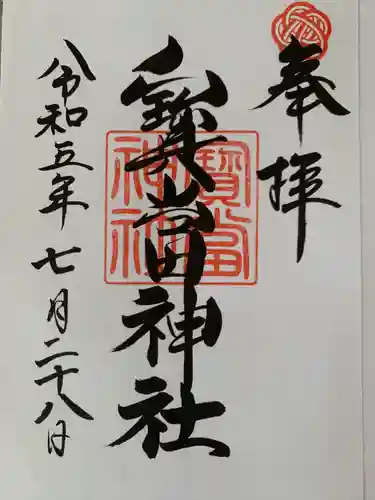 奉拝
寳當神社
寳當
神社
令和五年七月二十八日